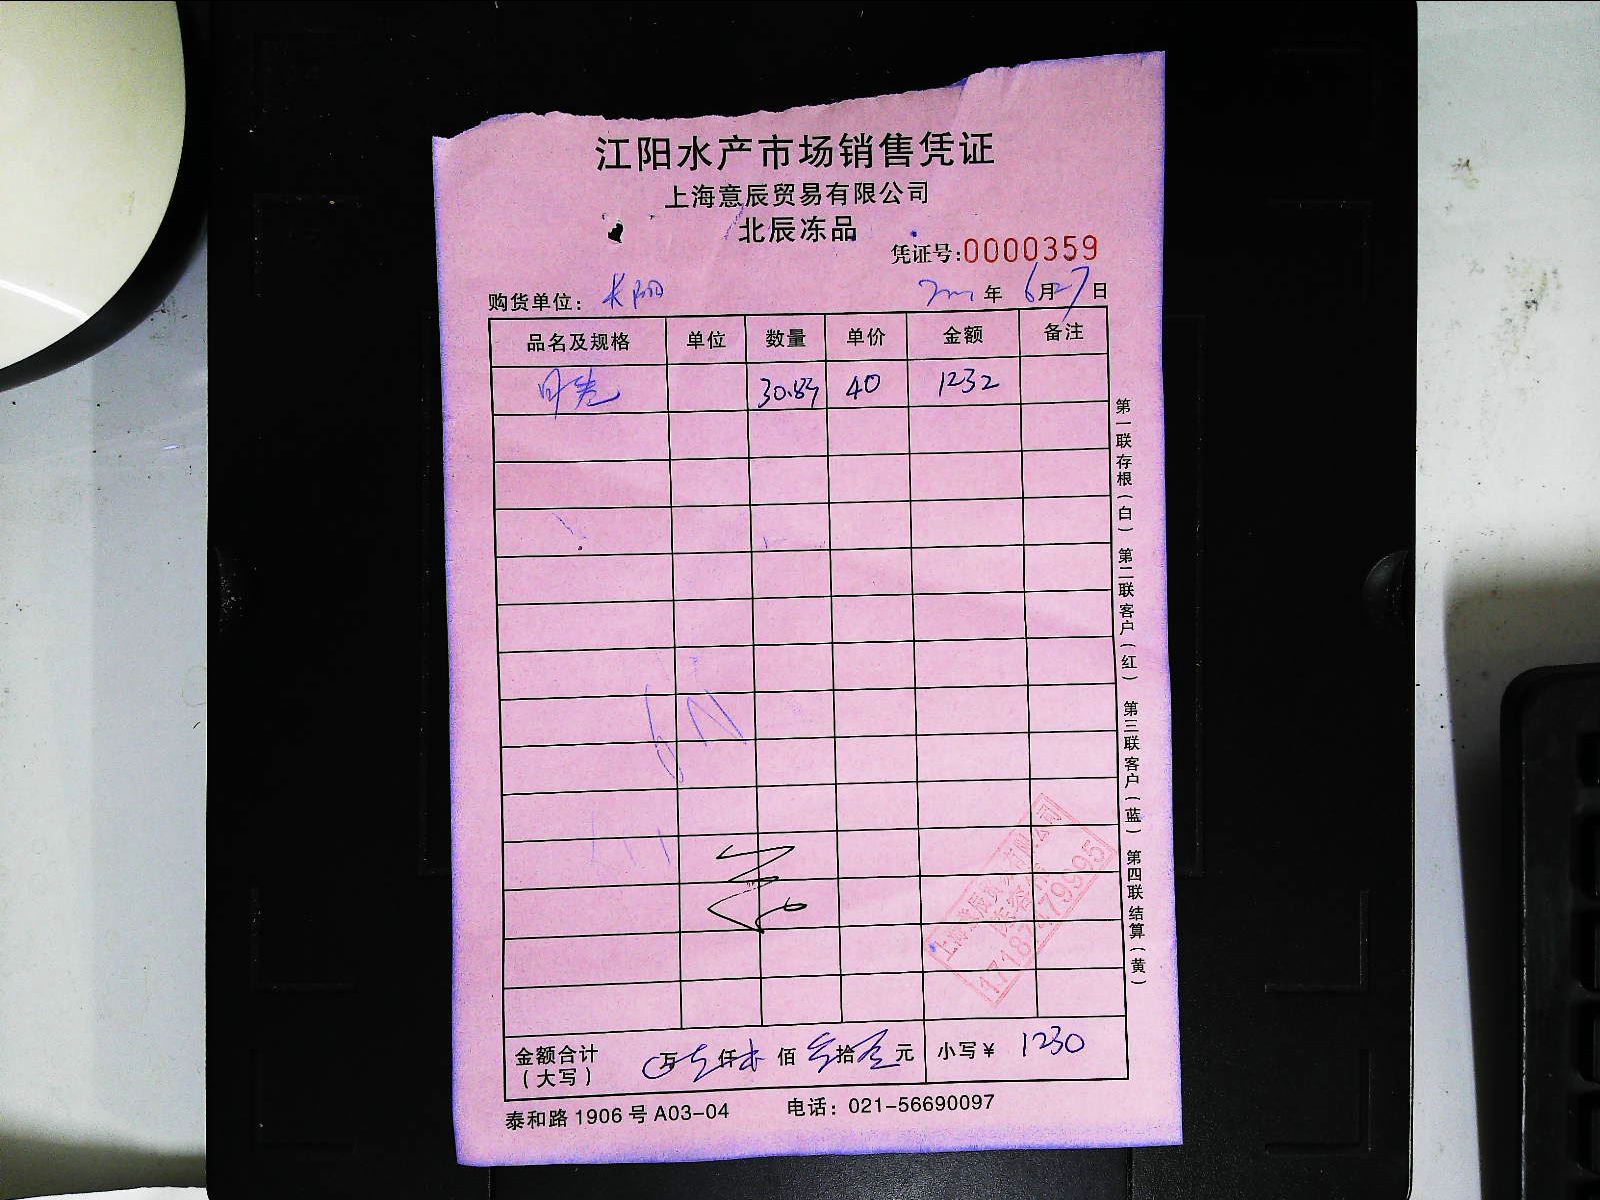 江阳水产市场销售凭证
上海意辰贸易有限公司
北辰冻品
凭证号:0000359
购货单位: 长阳 年 6月27日
品名及规格 单位 数量 单价 金额 备注
40 1232
第一联存根(白) 第二联客户(红) 第三联客户(蓝) 第四联结算(黄)
上海意辰贸易有限公司
金额合计 万 仟 佰 拾 元 小写¥ 1230
(大写)
泰和路1906号A03-04 电话: 021-56690097